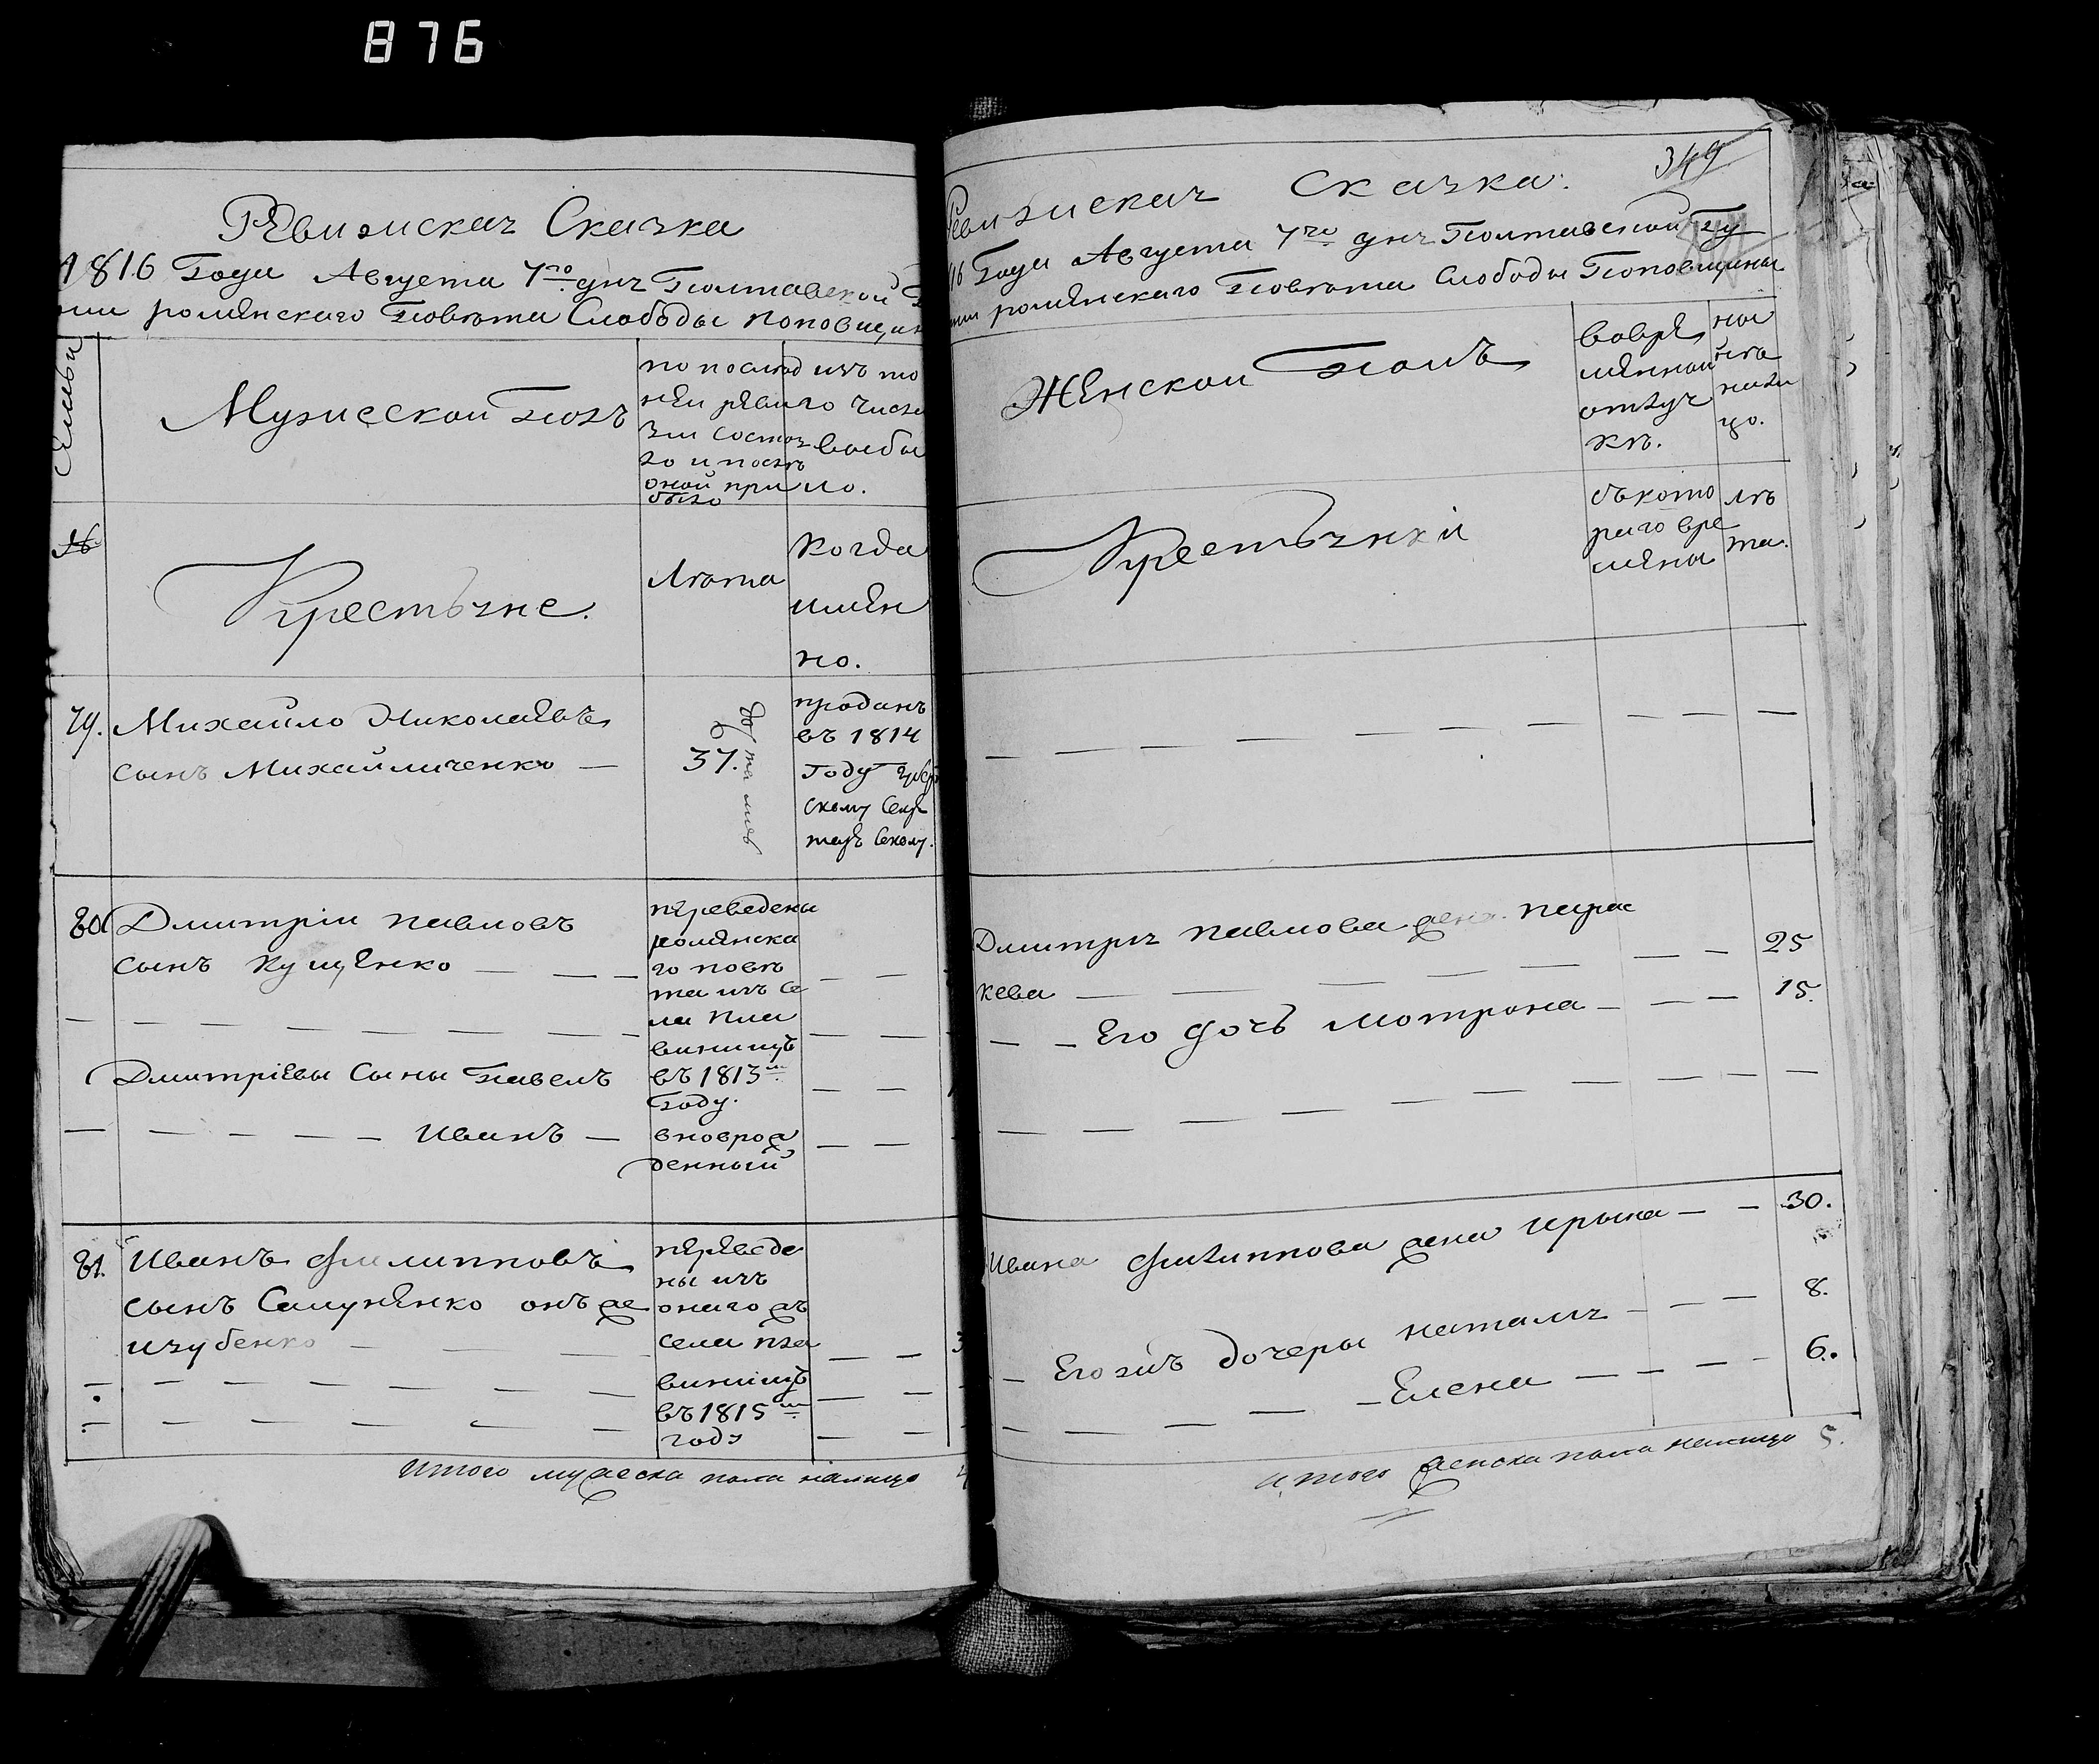 876
Ревизиская Сказка
1816 Года Августа 7го дня Полтавской
роменского Повѣта Слободы Поповщин
Семьи
Мужеской Полъ
по послѣд
ней реви
зіи состоя
ло и послѣ
оной при
было
изъ то
го числа
выбы
ло.
№
Крестьяне.
Лѣта
Когда
имен
но.
79. Михайло Николаевъ
сынъ Михайличенко —
37.
проданъ
въ 1814
году
скому Секре
80 Дмитріи павловъ
сынъ Кущенко — — —
переведены
роменска
го повѣ
та изъ се
ла пла
винищъ
въ 1813м
Году.
Дмитріевы Сыны Павелъ
— — — — — Иванъ —
вноврож
денный
81. Иванъ филипповъ
сынъ Самуненко онъ же
изубенко
переведе
ны изъ
онаго жъ
села пла
винищъ
въ 1815м
годѣ
Итого мужеска пола налицо 4
349
Ревизиская Сказка.
16 Года Августа 7го дня Полтавской Гу
роменскаго Повѣта Слободы Поповщины
Женской Полъ
вовре
менной
отлуч
кѣ.
ны
нѣ
нали
цо.
Крестьянки
съкото
раго вре
мены
лѣ
та.
Дмитрія павлова жена пара
кева — — — — — 25
— — Его дочь мотрона — — — 15.
Ивана филиппова жена Ирына — — 30.
— Его жъ дочеры наталія — — — 8.
— — — — Елена — — — 6.
итого женска пола налицо 5.